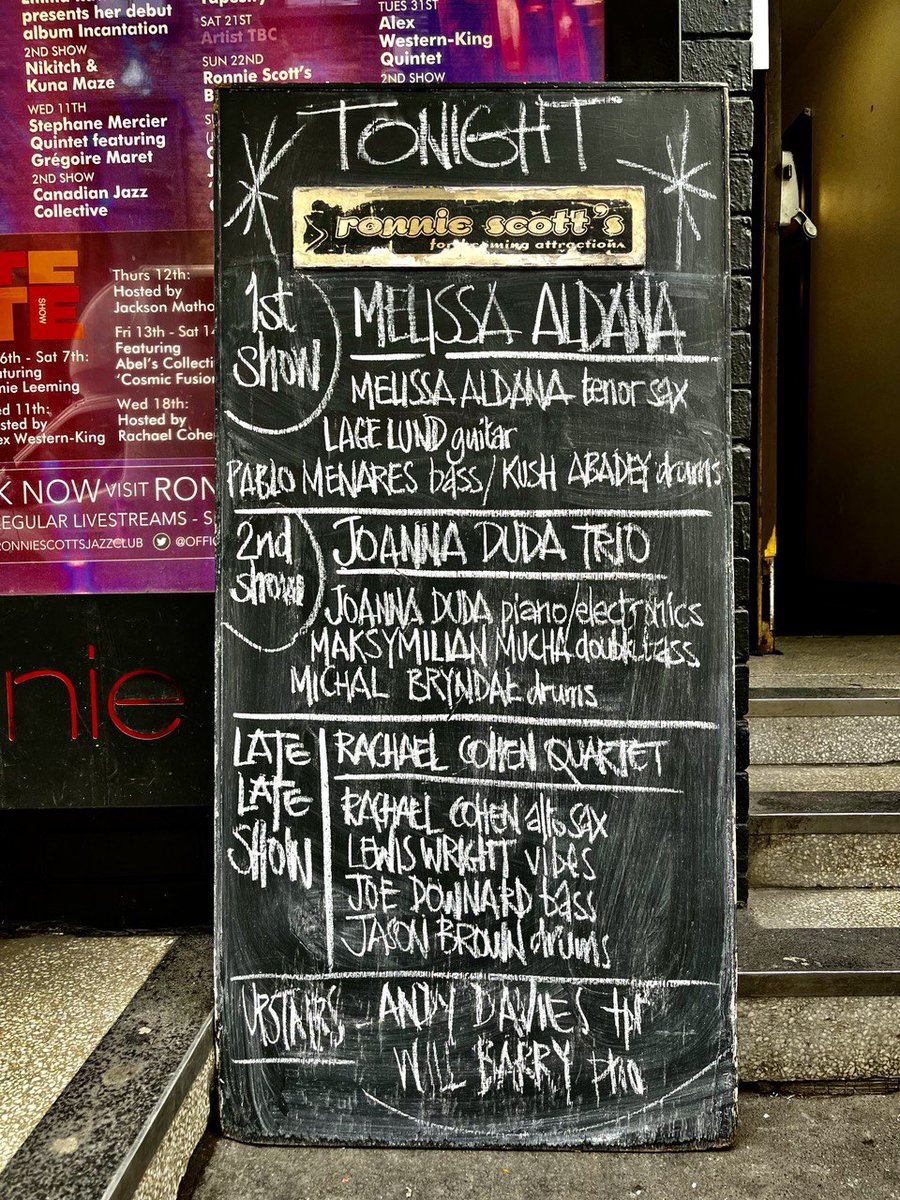 presents her debut
album Incantation
2ND SHOW
Nikitch &
Kuna Maze
WED 11TH
Stephane Mercier
Quintet featuring
Grégoire Maret
2ND SHOW
Canadian Jazz
Collective
SAT 21ST
Artist TBC
SUN 22ND
Ronnie Scott's
TUES 31ST
Alex
Western-King
Quintet
2ND SHOW
SHOW
Sat 7th:
Leeming
11th:
Western-King
Thurs 12th:
Hosted by
Jackson
Fri 13th - Sat
Featuring
Abel's
'Cosmic
Wed 18th:
Hosted by
Rachael
NOW VISIT
LIVESTREAMS -
nie
TONIGHT
ronnie scott's
forthcoming attractions
1st
show
MELISSA ALDANA
MELISSA ALDANA tenor sax
LAGE LUND guitar
PABLO MENARES bass / KUSH ABADEY drums
2nd
show
JOANNA DUDA TRIO
JOANNA DUDA piano/electronics
MAKSYMILIAN MUCHA double bass
MICHAL BRYNDAL drums
LATE
LATE
SHOW
RACHAEL COHEN QUARTET
RACHAEL COHEN alto sax
LEWIS WRIGHT vibes
JOE DOWNARD bass
JASON BROWN drums
UPSTAIRS - ANDY DAVIES tpt
WILL BARRY pno